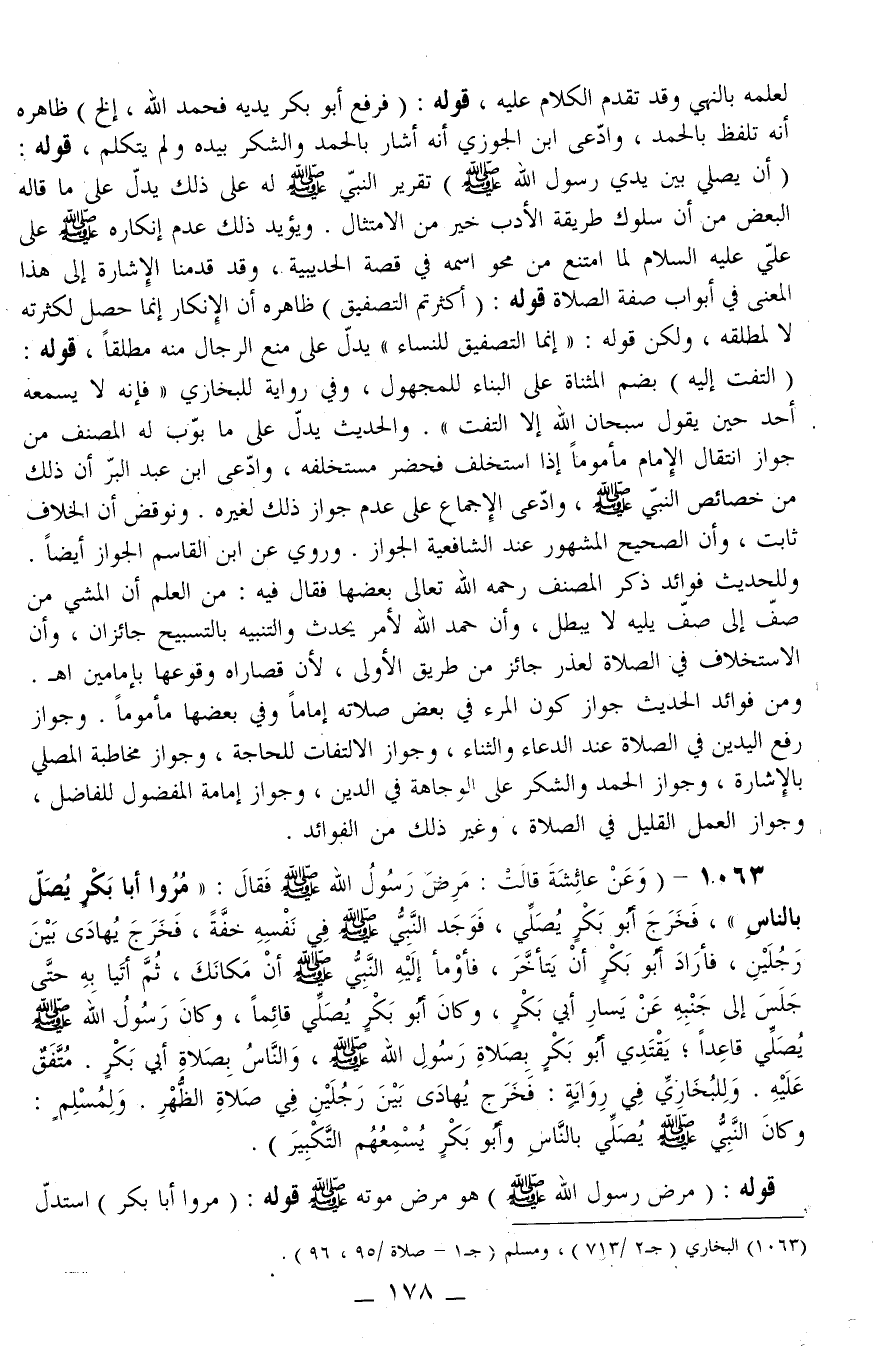 لعلمه بالنهي وقد تقدم الكلام عليه ، قوله : ( فرفع أبو بكر يديه فحمد الله ، إلخ ) ظاهره
أنه تلفظ بالحمد ، وادّعى ابن الجوزي أنه أشار بالحمد والشكر بيده ولم يتكلم ، قوله :
( أن يصلي بين يدي رسول الله ﷺ ) تقرير النبيّ ﷺ له على ذلك يدلّ على ما قاله
البعض من أن سلوك طريقة الأدب خير من الامتثال . ويؤيد ذلك عدم إنكاره ﷺ على
عليّ عليه السلام لما امتنع من محو اسمه في قصة الحديبية ، وقد قدمنا الإشارة إلى هذا
المعنى في أبواب صفة الصلاة قوله : ( أكثرتم التصفيق ) ظاهره أن الإنكار إنما حصل لكثرته
لا لمطلقه ، ولكن قوله : « إنما التصفيق للنساء » يدلّ على منع الرجال منه مطلقاً ، قوله :
( التفت إليه ) بضم المثناة على البناء للمجهول ، وفي رواية للبخاري « فإنه لا يسمعه
أحد حين يقول سبحان الله إلا التفت » . والحديث يدلّ على ما بوّب له المصنف من
جواز انتقال الإمام مأموماً إذا استخلف فحضر مستخلفه ، وادّعى ابن عبد البرّ أن ذلك
من خصائص النبيّ ﷺ ، وادّعى الإجماع على عدم جواز ذلك لغيره . ونوقض أن الخلاف
ثابت ، وأن الصحيح المشهور عند الشافعية الجواز . وروي عن ابن القاسم الجواز أيضاً .
وللحديث فوائد ذكر المصنف رحمه الله تعالى بعضها فقال فيه : من العلم أن المشي من
صفّ إلى صفّ يليه لا يبطل ، وأن حمد الله لأمر يحدث والتنبيه بالتسبيح جائزان ، وأن
الاستخلاف في الصلاة لعذر جائز من طريق الأولى ، لأن قصاراه وقوعها بإمامين اهـ .
ومن فوائد الحديث جواز كون المرء في بعض صلاته إماماً وفي بعضها مأموماً . وجواز
رفع اليدين في الصلاة عند الدعاء والثناء ، وجواز الالتفات للحاجة ، وجواز مخاطبة المصلي
بالإشارة ، وجواز الحمد والشكر على الوجاهة في الدين ، وجواز إمامة المفضول للفاضل ،
وجواز العمل القليل في الصلاة ، وغير ذلك من الفوائد .
١٠٦٣ - ( وَعَنْ عائِشَةَ قالَتْ : مَرِضَ رَسُولُ الله ﷺ فَقالَ : « مُرُوا أبا بَكْرٍ يُصَلّ
بالناسِ » ، فَخَرَجَ أبُو بَكْرٍ يُصَلِّي ، فَوَجَد النَّبِيُّ ﷺ فِي نَفْسِهِ خفَّةً ، فَخَرَجَ يُهادَى بَيْنَ
رَجُلَيْنِ ، فأرَادَ أبُو بَكْرٍ أنْ يَتأخَّرَ ، فأوْمأ إلَيْهِ النَّبِيُّ ﷺ أنْ مَكانَكَ ، ثُمَّ أتَيا بِهِ حتَّى
جَلَسَ إلى جَنْبِهِ عَنْ يَسارِ أبي بَكْرٍ ، وكانَ أبُو بَكْرٍ يُصَلِّي قائِماً ، وكانَ رَسُولُ الله ﷺ
يُصَلِّي قاعِداً ؛ يَقْتَدِي أبُو بَكْرٍ بِصَلاةِ رَسُولِ الله ﷺ ، وَالنَّاسُ بِصَلاةِ أبي بَكْرٍ . مُتَّفَقٌ
عَلَيْهِ . وَلِلبُخَارِيِّ فِي رِوَايَةٍ : فَخَرَج يُهادَى بَيْنَ رَجُلَيْنِ فِي صَلاةِ الظُّهْرِ . وَلِمُسْلِمٍ :
وكانَ النَّبِيُّ ﷺ يُصَلِّي بالنَّاسِ وأبُو بَكْرٍ يُسْمِعُهُم التَّكْبِيرَ ) .
قوله : ( مرض رسول الله ﷺ ) هو مرض موته ﷺ قوله : ( مروا أبا بكر ) استدلّ
(١٠٦٣) البخاري ( جـ٢ /٧١٣ ) ، ومسلم ( جـ١ - صلاة /٩٥ ، ٩٦ ) .
_ ١٧٨ _